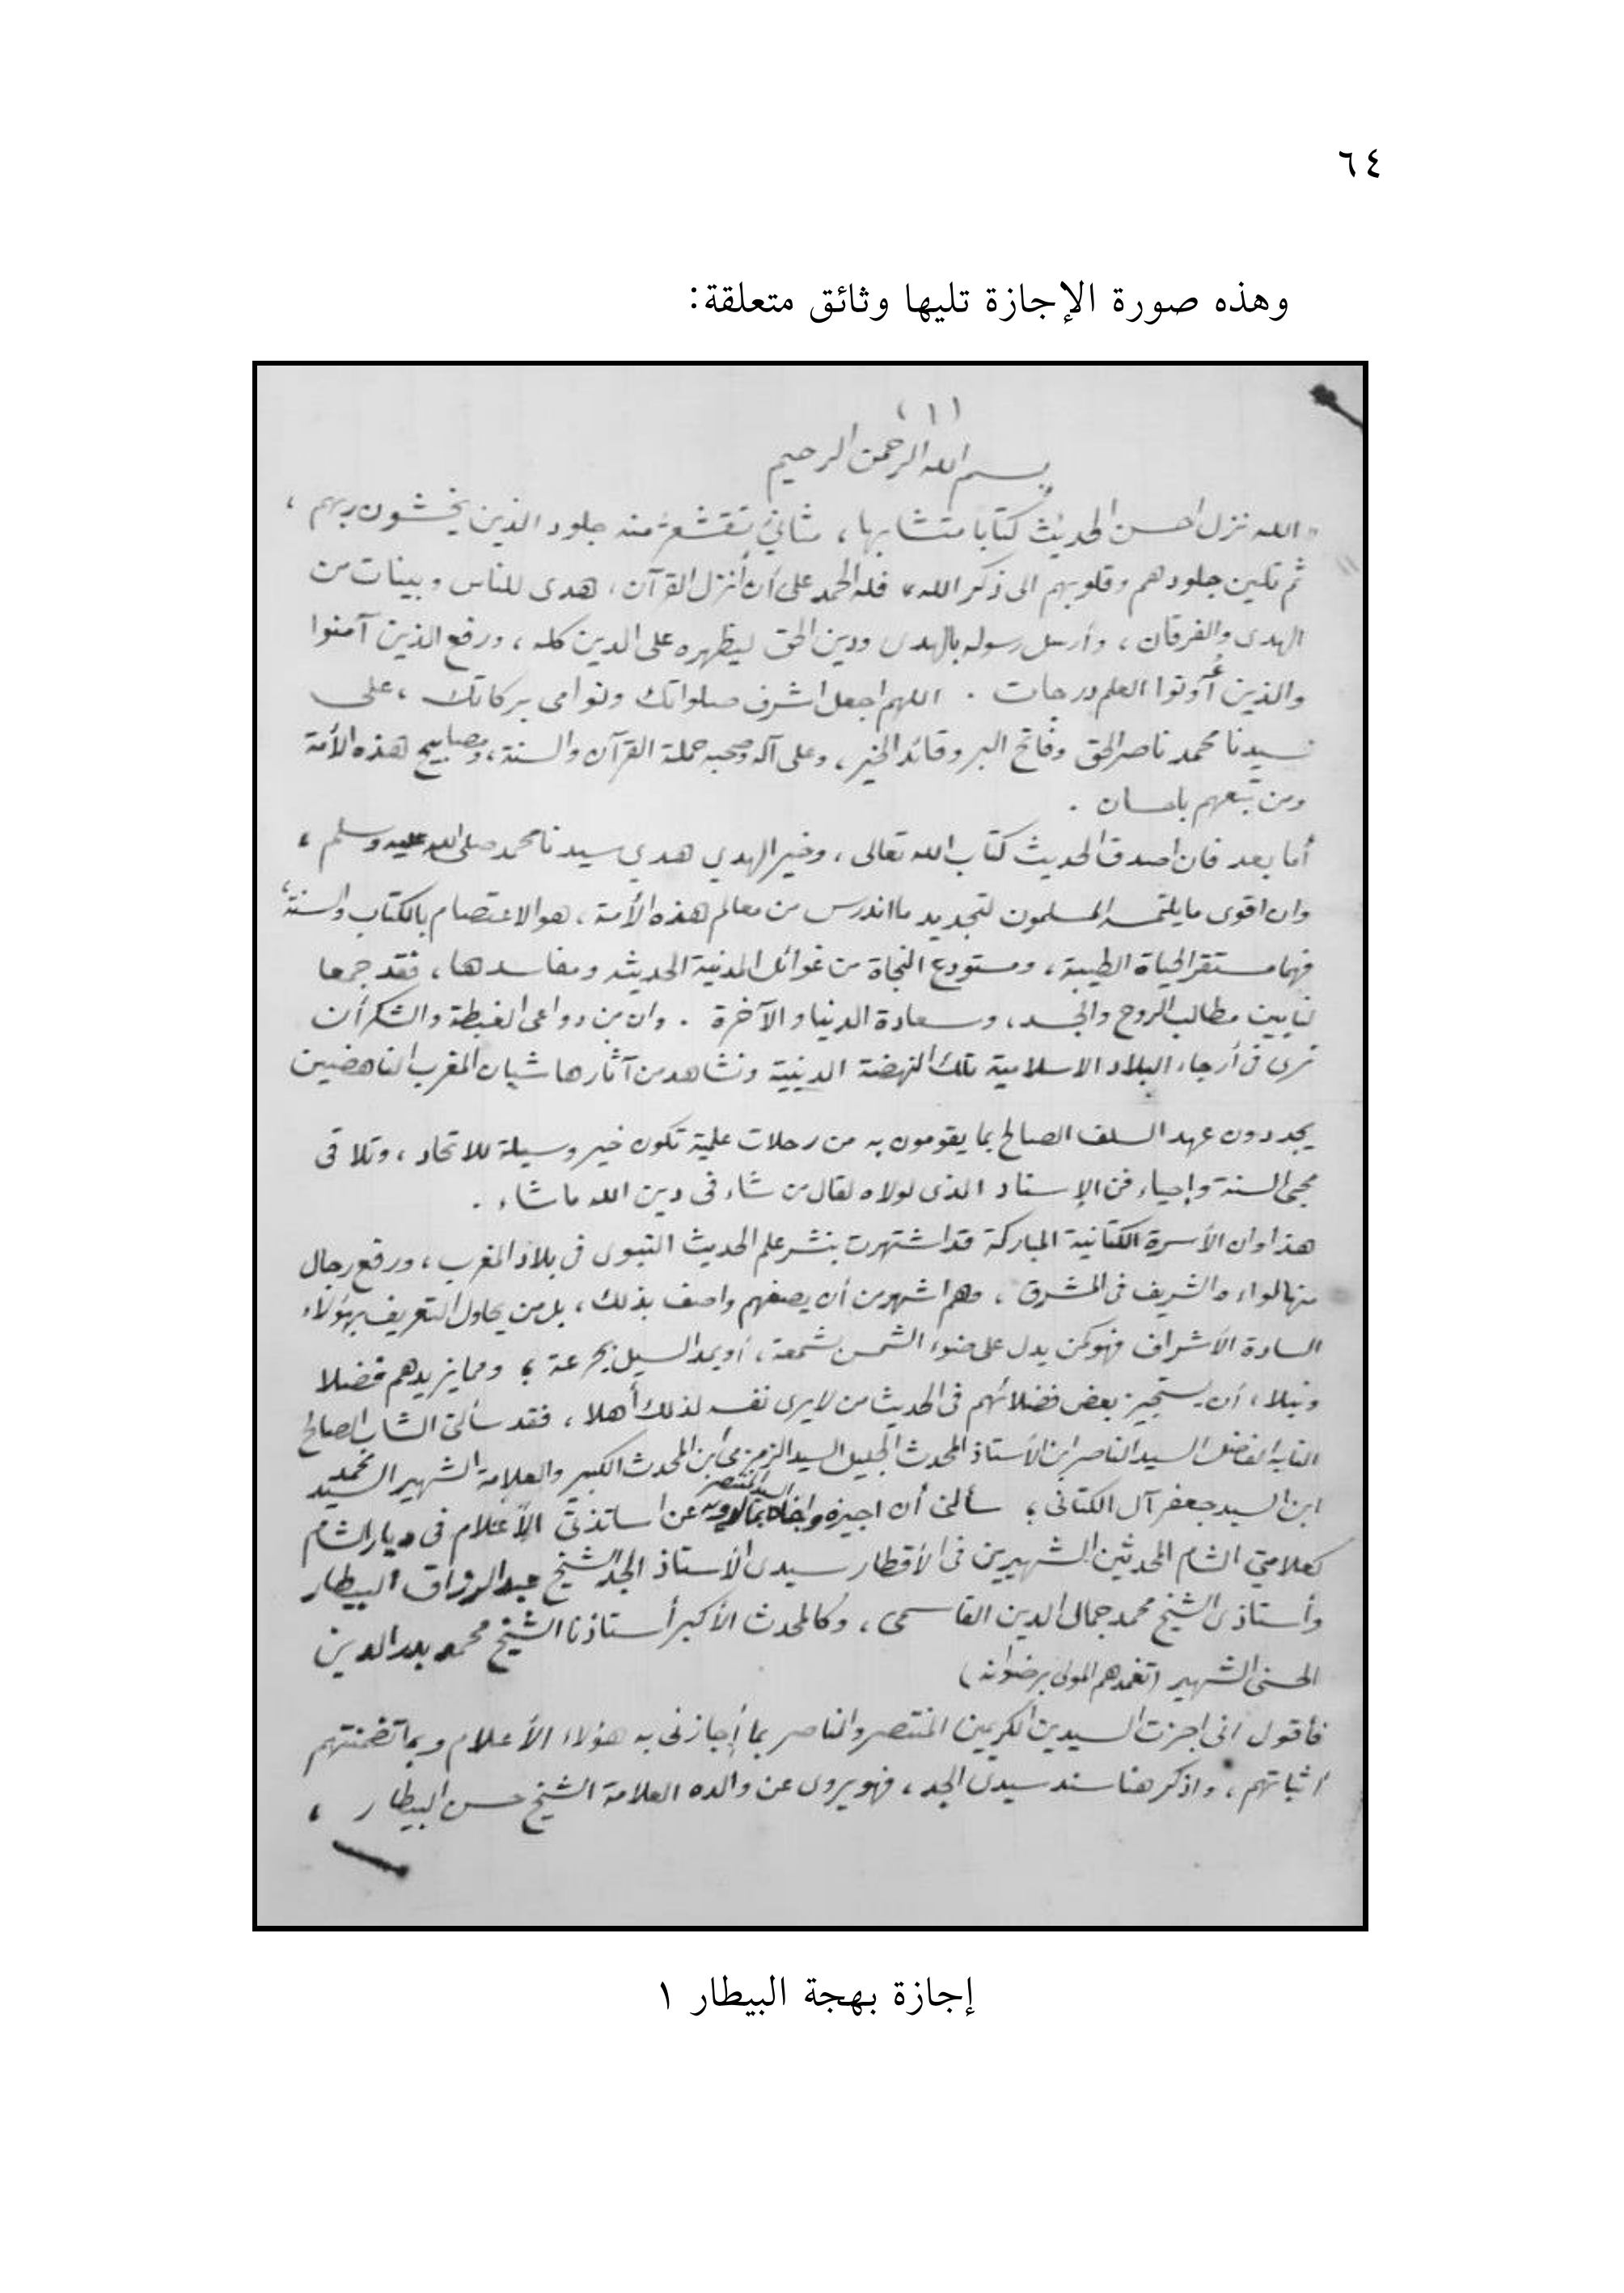 ٦٤
وهذه صورة الإجازة تليها وثائق متعلقة:
(١)
بسم الله الرحمن الرحيم
"الله نزل احسن الحديث كتابا متشابها، مثاني تقشعر منه جلود الذين يخشون ربهم،
ثم تلين جلودهم وقلوبهم الى ذكر الله" فله الحمد على أن أنزل القرآن، هدى للناس وبينات من
الهدى والفرقان، وأرسل رسوله بالهدى ودين الحق ليظهره على الدين كله، ورفع الذين آمنوا
والذين أوتوا العلم درجات . اللهم اجعل اشرف صلواتك ونوامى بركاتك، على
سيدنا محمد ناصر الحق وفاتح البر وقائد الخير، وعلى آله وصحبه حملة القرآن والسنة، ومصابيح هذه الأمة
ومن تبعهم باحسان .
أما بعد فان اصدق الحديث كتاب الله تعالى، وخير الهدي هدي سيدنا محمد صلى الله عليه وسلم،
وان اقوى ما يلتمسه المسلمون لتجديد ما اندرس من معالم هذه الأمة، هو الاعتصام بالكتاب والسنة،
فهما مستقر الحياة الطيبة، ومستودع النجاة من غوائل المدنية الحديثة ومفاسدها، فقد جمعا
لنا بين مطالب الروح والجسد، وسعادة الدنيا والآخرة . وان من دواعى الغبطة والشكر أن
نرى فى أرجاء البلاد الاسلامية تلك النهضة الدينية ونشاهد من آثارها شبان المغرب الناهضين
يجددون عهد السلف الصالح بما يقومون به من رحلات علمية تكون خير وسيلة للاتحاد، وتلاقى
محبى السنة وإحياء فن الإسناد الذى لولاه لقال من شاء فى دين الله ما شاء .
هذا وان الأسرة الكتانية المباركة قد اشتهرت بنشر علم الحديث النبوى فى بلاد المغرب، ورفع رجال
منها لواءه الشريف فى المشرق، وهم اشهر من أن يصفهم واصف بذلك، بل من يحاول التعريف بهؤلاء
السادة الأشراف فهو كمن يدل على ضوء الشمس بشمعة، أو يمد السيل بجرعة؛ ومما يزيدهم فضلا
ونبلا، أن يستجيز بعض فضلائهم فى الحديث من لا يرى نفسه لذلك أهلا، فقد سألنى الشاب الصالح
النابه الفاضل السيد الناصر ابن الأستاذ المحدث الجليل السيد الزمزمى ابن المحدث الكبير والعلامة الشهير السيد محمد
ابن السيد جعفر آل الكتانى؛ سألنى أن اجيزه واخاه السيد المنتصر بما أرويه عن اساتذتى الأعلام فى ديار الشام
كعلامتي الشام المحدثين الشهيرين فى الأقطار سيدى الأستاذ الجد الشيخ عبد الرزاق البيطار
وأستاذى الشيخ محمد جمال الدين القاسمى، وكالمحدث الأكبر أستاذنا الشيخ محمد بدر الدين
الحسنى الشهير (تغمدهم المولى برضوانه)
فأقول انى اجزت السيدين الكريمين المنتصر والناصر بما أجازنى به هؤلاء الأعلام وبما تضمنته
اثباتهم، واذكر هنا سند سيدى الجد، فهو يروى عن والده العلامة الشيخ حسن البيطار،
إجازة بهجة البيطار ١